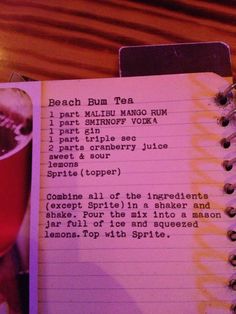 Beach Bum Tea
1 part MALIBU MANGO RUM
1 part SMIRNOFF VODKA
1 part gin
1 part triple sec
2 parts cranberry juice
sweet & sour
lemons
Sprite (topper)
Combine all of the ingredients
(except Sprite) in a shaker and
shake. Pour the mix into a mason
jar full of ice and squeezed
lemons. Top with Sprite.